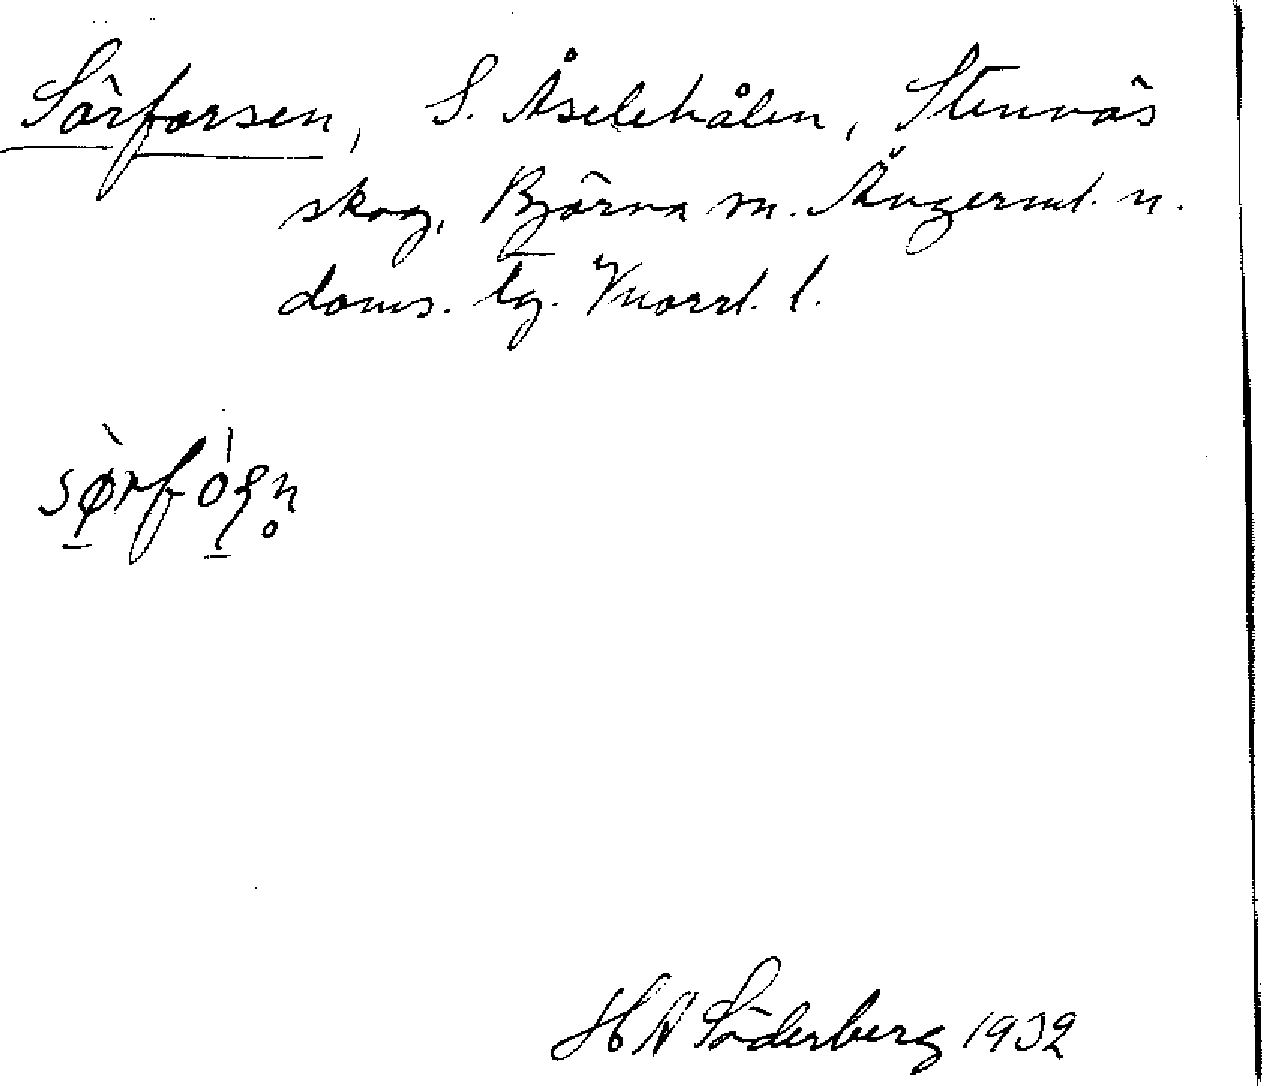 Sörforsen, S. Åselehålen, Stennäs
skog, Björna sn. Ångerml. n.
doms. lg. Vnorrl. l.
H A Söderberg 1932